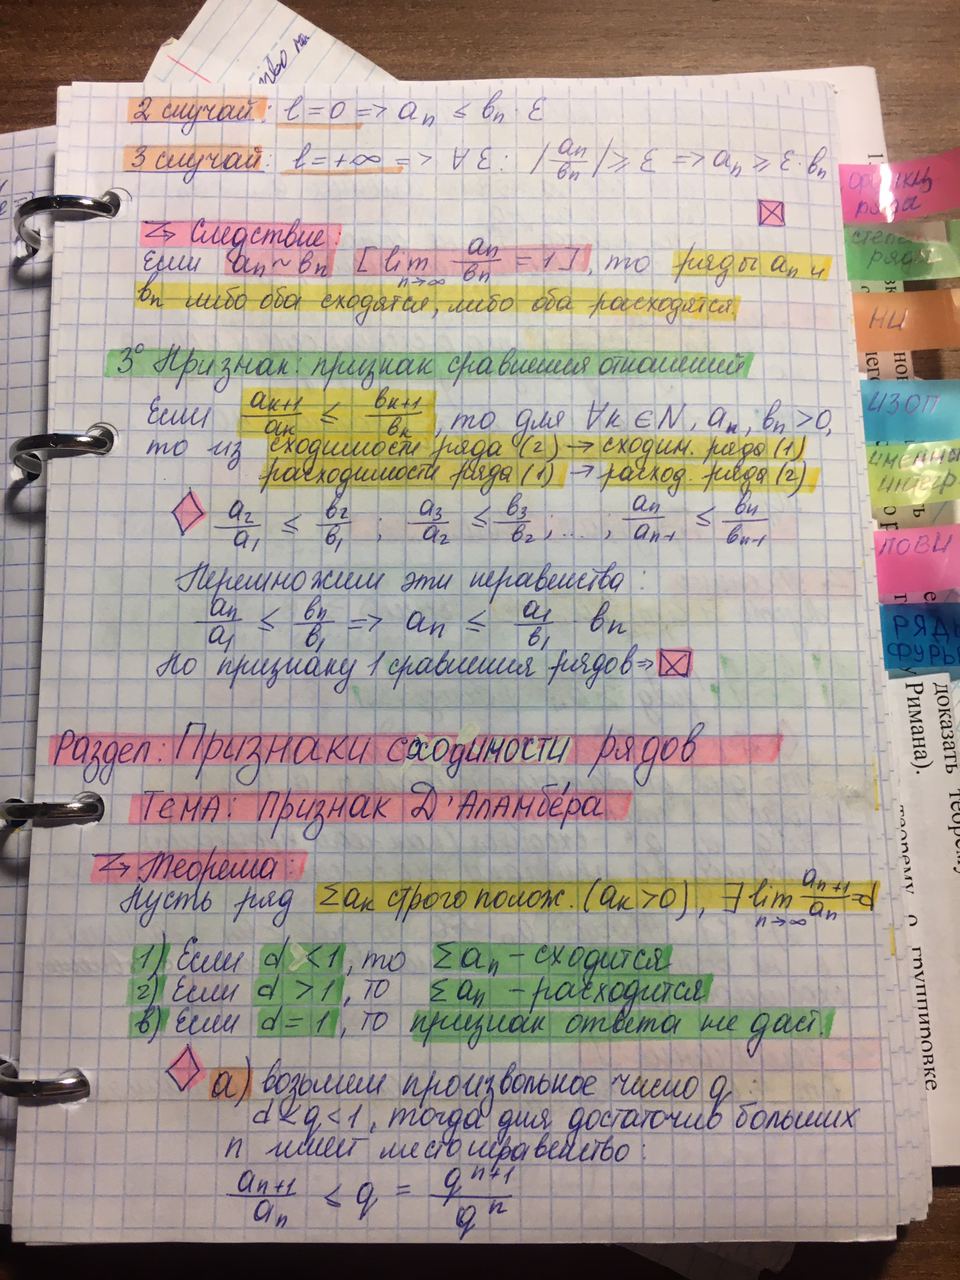 2 случай: l = 0 => aₙ ≤ bₙ · ε
3 случай: l = +∞ => ∀ ε : |aₙ/bₙ| ≥ ε => aₙ ≥ ε · bₙ
Следствие:
Если aₙ ~ bₙ [lim n→∞ aₙ/bₙ = 1], то ряды aₙ и
bₙ либо оба сходятся, либо оба расходятся.
3° Признак: признак сравнения отношений
Если aₖ₊₁/aₖ ≤ bₖ₊₁/bₖ, то для ∀k ∈ N, aₙ, bₙ > 0,
то из сходимости ряда (2) → сходим. ряда (1)
расходимости ряда (1) → расход. ряда (2)
a₂/a₁ ≤ b₂/b₁ ; a₃/a₂ ≤ b₃/b₂ ; ... , aₙ/aₙ₋₁ ≤ bₙ/bₙ₋₁
Перемножим эти неравенства:
aₙ/a₁ ≤ bₙ/b₁ => aₙ ≤ a₁/b₁ bₙ
По признаку 1 сравнения рядов =>
Раздел: Признаки сходимости рядов
Тема: Признак Д'Аламбе́ра
Теорема:
Пусть ряд Σaₖ строго полож. (aₖ > 0), ∃ lim n→∞ aₙ₊₁/aₙ = d
1) Если d < 1, то Σaₙ - сходится
2) Если d > 1, то Σaₙ - расходится
в) Если d = 1, то признак ответа не даст.
а) возьмем произвольное число q :
d < q < 1, тогда для достаточно больших
n имеет место неравенство:
aₙ₊₁/aₙ ≤ q = qⁿ⁺¹/qⁿ
ряда
ряды
НИ
ИЗОП
ПОВИ
РЯДЫ
ФУРЬЕ
доказать теорему
Римана).
группировке